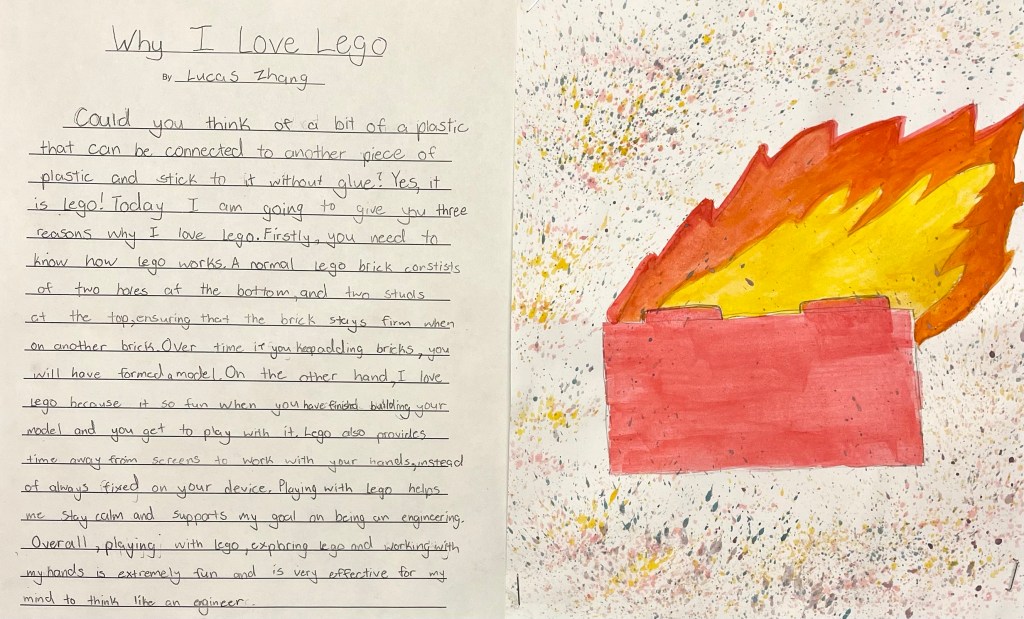 Why I Love Lego
By Lucas Zhang
Could you think of a bit of a plastic
that can be connected to another piece of
plastic and stick to it without glue? Yes, it
is lego! Today I am going to give you three
reasons why I love lego. Firstly, you need to
know how lego works. A normal lego brick constists
of two holes at the bottom, and two studs
at the top, ensuring that the brick stays firm when
on another brick. Over time if you keep adding bricks, you
will have formed a model. On the other hand, I love
lego because it so fun when you have finished building your
model and you get to play with it. Lego also provides
time away from screens to work with your hands, instead
of always fixed on your device. Playing with lego helps
me stay calm and supports my goal on being an engineering.
Overall, playing with lego, exploring lego and working with
my hands is extremely fun and is very effective for my
mind to think like an engineer.